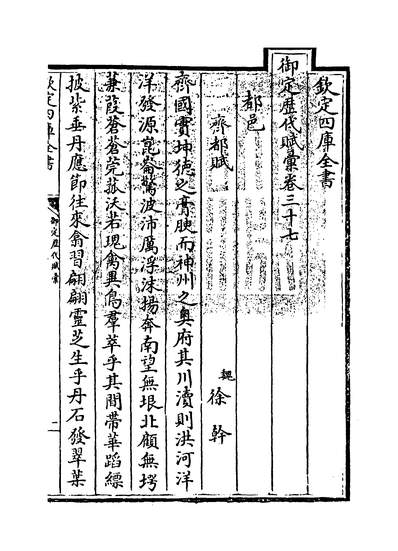 欽定四庫全書
御定歷代賦彙卷三十七
都邑
齊都賦
魏
徐幹
齊國實坤德之膏腴而神州之奥府其川瀆則洪河洋
洋發源崑崙驚波沛厲浮沫揚奔南望無垠北顧無垮
蒹葭蒼蒼莞菰沃若瑰禽異鳥羣萃乎其間帶華蹈縹
披紫垂丹應節往來翕習翩翩靈芝生乎丹石發翠葉
欽定四庫全書
御定歷代賦彙